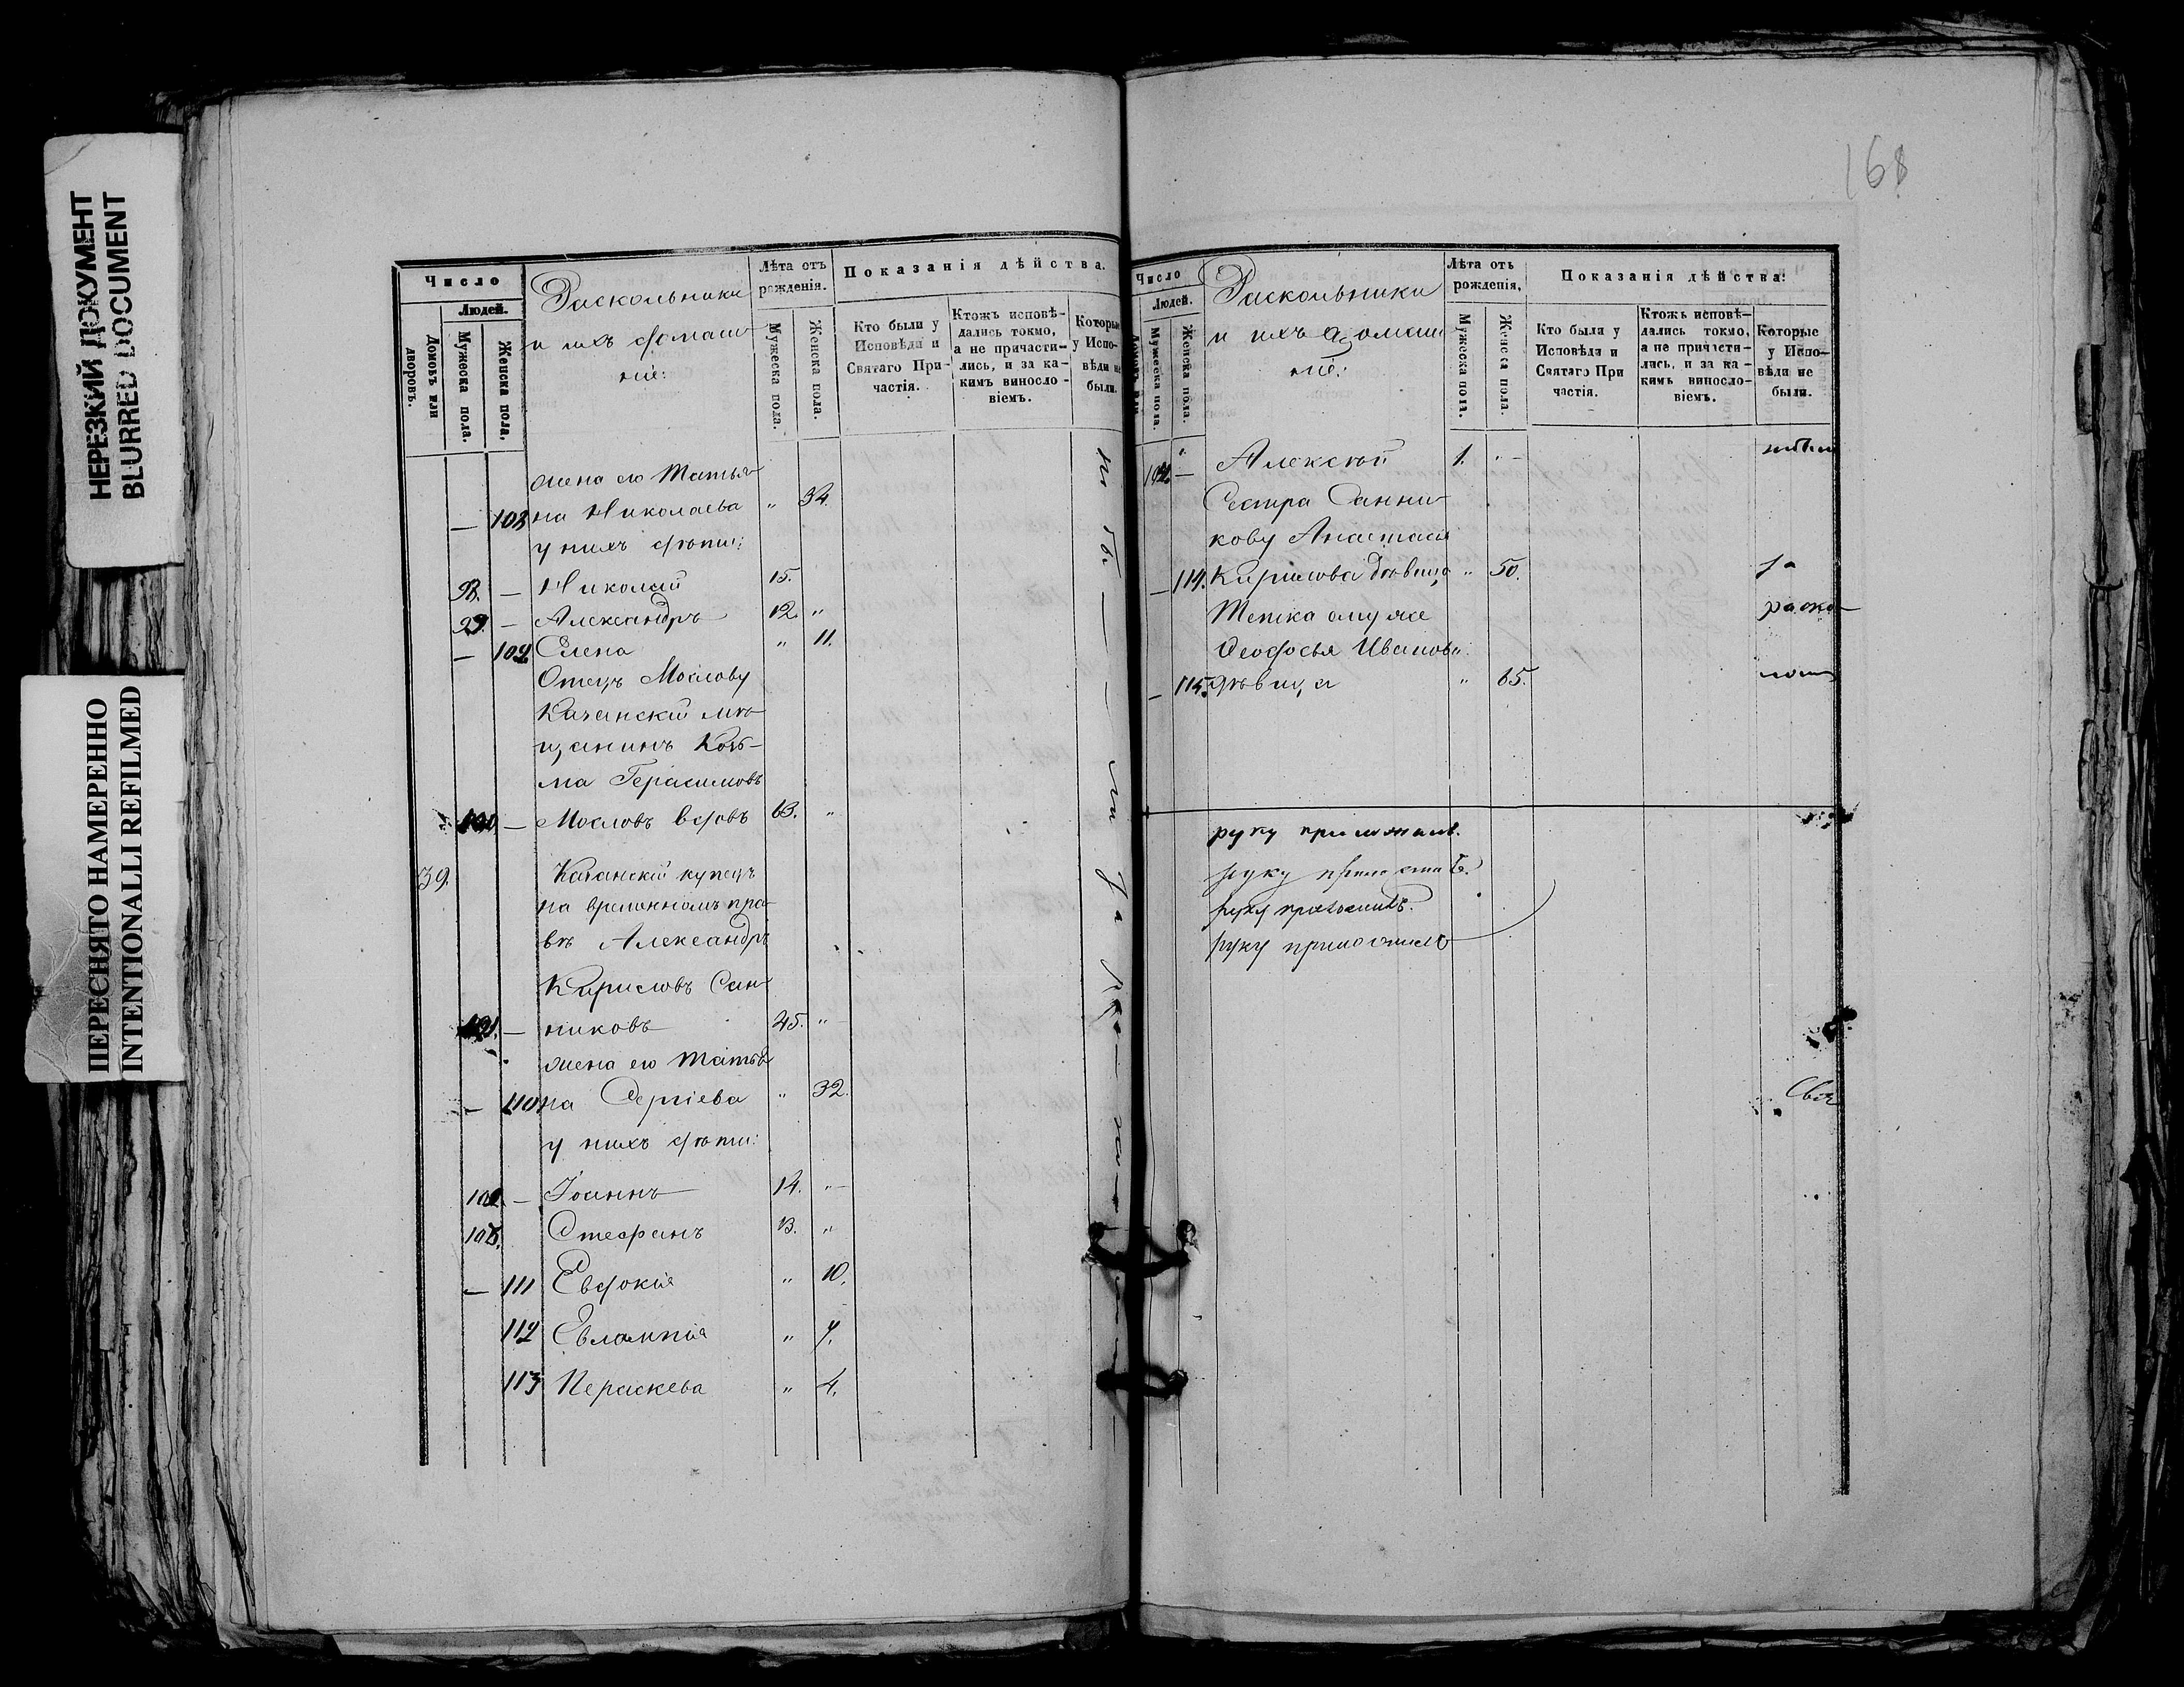 НЕРЕЗКИЙ ДОКУМЕНТ
BLURRED DOCUMENT
ПЕРЕСНЯТО НАМЕРЕННО
INTENTIONALLI REFILMED
Число
Людей.
Домовъ или дворовъ.
Мужеска пола.
Женска пола.
Раскольники
и ихъ домаш-
ніе:
Лѣта отъ рожденія.
Мужеска пола.
Женска пола.
Показанія дѣйства.
Кто были у Исповѣди и Святаго Причастія.
Ктожъ исповѣ-
дались токмо,
а не причасти-
лись, и за ка-
кимъ виносло-
віемъ.
Которые
у Испо-
вѣди не
были.
жена его Татья-
— 108 на Николаева " 34.
у нихъ дѣти:
98. — Николай 15.
99. — Александръ 12. "
— 109. Елена " 11.
Отецъ Маслову
Казанскій мѣ-
щанинъ Козь-
ма Герасимовъ
100 — Масловъ вдовъ 63. "
39. Казанскій купецъ
на временномъ пра-
вѣ Александръ
Кириловъ Сан-
101. — никовъ 45. "
жена его Татья-
— 110 на Сергіева " 32.
у нихъ дѣти:
102 — Іоаннъ 14. "
103. Стефанъ 13. "
— 111 Евдокія " 10.
112 Евлампія " 7.
113 Параскева " 4.
168
Число
Людей.
Мужеска пола.
Женска пола.
Раскольники
и ихъ домаш
ніе:
Лѣта отъ рожденія.
Мужеска пола.
Женска пола.
Показанія дѣйства:
Кто были у
Исповѣди и
Святаго При
частія.
Ктожъ исповѣ-
дались токмо,
а не причасти-
лись, и за ка-
кимъ виносло-
віемъ.
Которые
у Испо-
вѣди не
были.
104. — Алексѣй 1. " —
Сестра Санни-
кову Анастасія
— 114. Кирилова дѣвица " 50. за
Тетка ему же раско-
Феодосья Иванова
— 115. дѣвица " 65.
руку приложилъ.
руку приложилъ.
руку приложилъ.
руку приложилъ
Свя